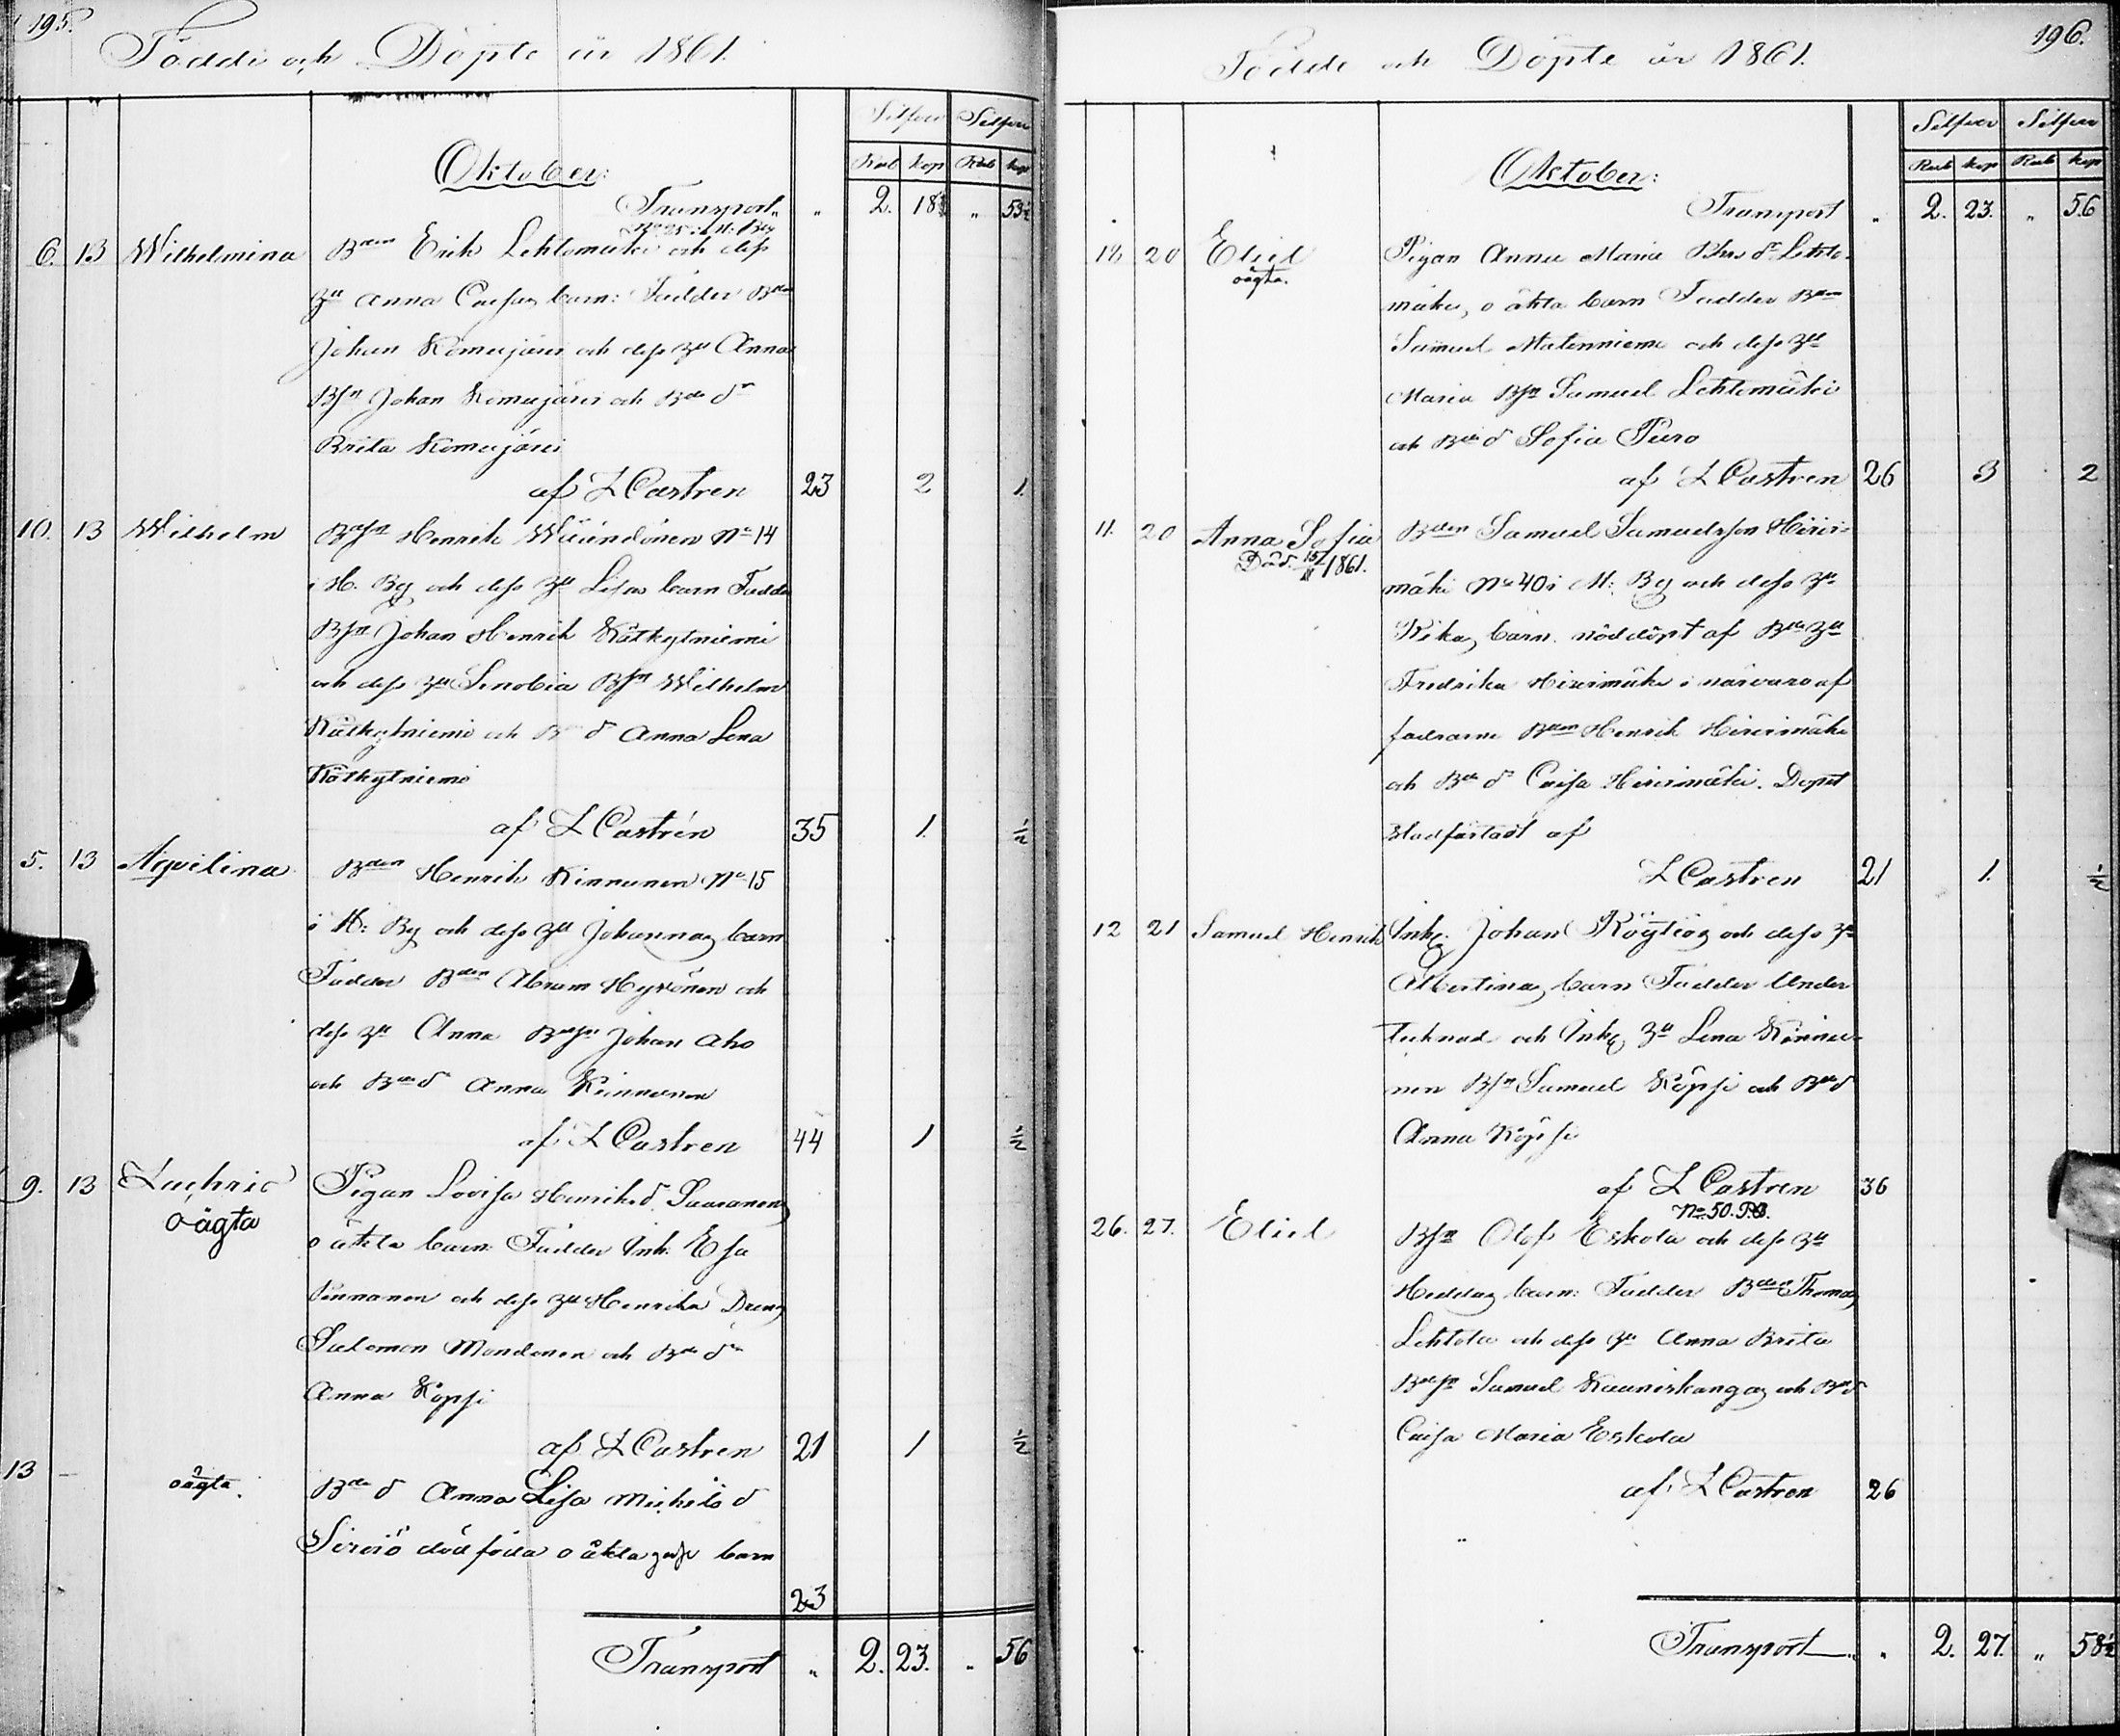 195.
Födde och Döpte år 1861.
Silfver Silfver
Oktober:
Rub kop Rub kop
Transport „ „ 2. 18½ „ 53½
No 25 i H: By
6. 13 Wilhelmina Bden Erik Lehtomäki och dess
Hu Anna Caisas barn: Fadder Bden
Johan Komujärvi och dess Hu Anna
Bsn Johan Komujärvi och Bde dr
Brita Komujärvi
af L Castren 23 2 1.
10. 13 Wilhelm Bdesn Henrik Väänänen No 14
i H. By och dess Hu Lisas barn Fadde
Bsn Johan Henrik Kätkytniemi
och dess Hu Senobia Bsn Wilhelm
Kätkytniemi och B d Anna Lena
Kätkytniemi
af L Castrén 35 1. ½
5. 13 Aqvilina Bden Henrik Kinnunen No 15
i H: By och dess Hu Johannas barn
Fadder Bden Abram Hyvönen och
dess Hu Anna Bdesn Johan Aho
och Bde dr Anna Kinnunen
af L Castren 44 1 ½
9. 13 Zachris Pigan Lovisa Henriks d. Saaranens
oägta
o äkta barn: Fadder Inh. Esa
Pinnanen och dess Hu Henrika Dreng
Salomon Mondonen och Bde dr
Anna Köpsi
af L Castren 21 1 ½
13 — oägta. Bde d Anna Lisa Michels d
Sirviö död föda o äkta gosse barn
23
Transport „ 2. 23. „ 56
196.
Födde och Döpte år 1861.
Silfver Silfver
Oktober:
Rub kop Rub kop
Transport „ 2. 23. „ 56
18 20 Eliel Pigan Anna Maria Bhns dr Lehto-
oägta.
mäkis, o äkta barn Fadder Bden
Samuel Matenniemi och dess Hu
Maria Bsn Samuel Lehtomäki
och Bde d Sofia Puro
af L Castren 26 3 2
11. 20 Anna Sofia Bden Samuel Samuelsson Hirvi-
Död. 15/11 1861.
mäki No 40 i H: By och dess Hu
Rikas barn. nöddöpt af Bde Hu
Fredrika Hirvimäki i närvaro af
fadrarne Bden Henrik Hirvimäki
och Bde dr Caisa Hirvimäki. Dopet
stadfästadt af
L Castren 21 1. ½
12 21 Samuel Henrik Inhs. Johan Köytiös och dess Hu
Albertinas barn Fadder Under
tecknad och Inhs Hu Lena Kinnu-
nen Bsn Samuel Köpsi och Bde d
Anna Köpsi
af L Castren 36
No 50. P.B.
26. 27. Eliel Bsn Olof Eskola och dess Hu
Heddas barn: Fadder Bden Thomas
Lehtola och dess Hu Anna Brita
Bdesn Samuel Kauniskangas och Bde d
Caisa Maria Eskola
af L Castren 26
Transport „ „ 2. 27. „ 58½